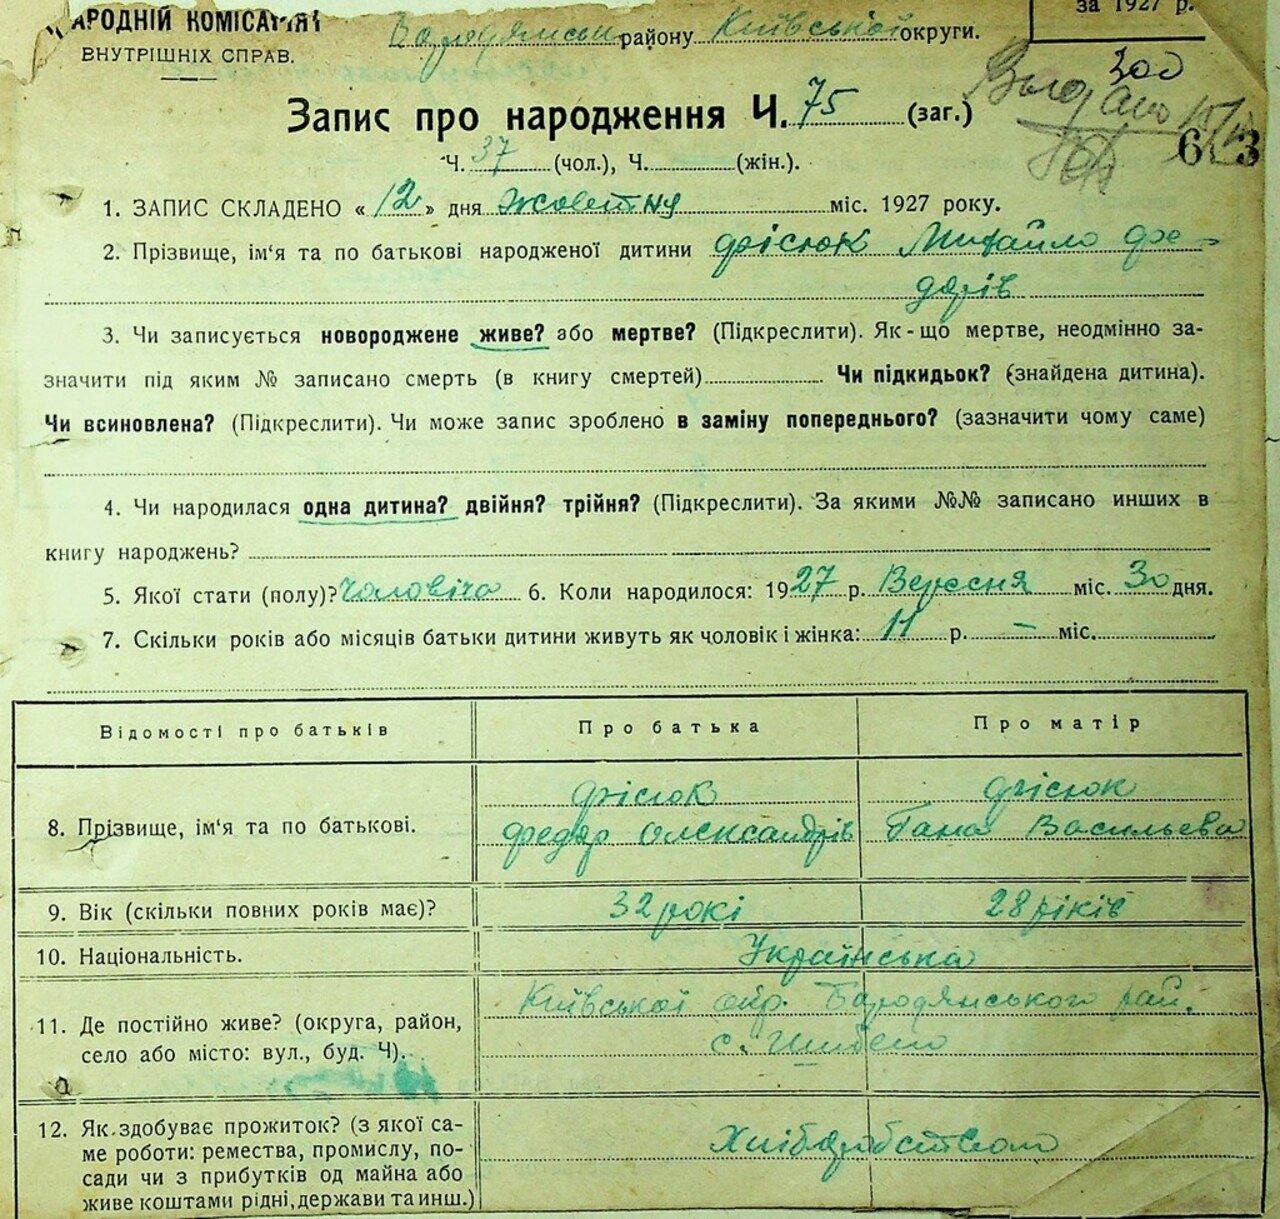 НАРОДНІЙ КОМІСАРІЯТ
ВНУТРІШНІХ СПРАВ.
Бародянськ району Київської округи.
за 1927 р.
300
Запис про народження Ч. 75 (заг.)
63
Ч. 37 (чол.), Ч. (жін.).
1. ЗАПИС СКЛАДЕНО « 12 » дня Жовтня міс. 1927 року.
2. Прізвище, ім'я та по батькові народженої дитини Фрісюк Михайло Фе-
дарів
3. Чи записується новороджене живе? або мертве? (Підкреслити). Як-що мертве, неодмінно за-
значити під яким № записано смерть (в книгу смертей) Чи підкидьок? (знайдена дитина).
Чи всиновлена? (Підкреслити). Чи може запис зроблено в заміну попереднього? (зазначити чому саме)
4. Чи народилася одна дитина? двійня? трійня? (Підкреслити). За якими №№ записано инших в
книгу народжень?
5. Якої стати (полу)? Чоловіча 6. Коли народилося: 1927 р. Вересня міс. 30 дня.
7. Скільки років або місяців батьки дитини живуть як чоловік і жінка: 11 р. – міс.
Відомості про батьків Про батька Про матір
Фрісюк Фрісюк
8. Прізвище, ім'я та по батькові. Федар Олександрів Гана Васильева
9. Вік (скільки повних років має)? 32 рокі 28 ріків
10. Національність. Українська
Київської окр. Бародянського рай.
11. Де постійно живе? (округа, район,
село або місто: вул., буд. Ч). с. Шибено
12. Як здобуває прожиток? (з якої са-
ме роботи: ремества, промислу, по- Хлібаробством
сади чи з прибутків од майна або
живе коштами рідні, держави та инш.)